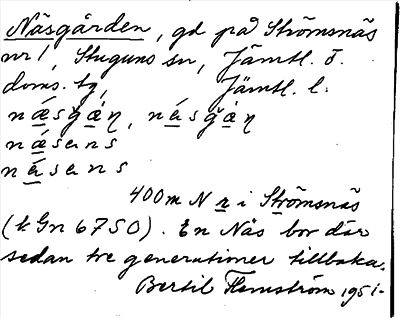 Näsgården, gd på Strömsnäs
nr 1, Stuguns sn, Jämtl. ö.
doms. tg, Jämtl. l.
næsgàṇ, násgàṇ
næsens
násens
400 m N r i Strömsnäs
(k Gn 6750). En Näs bor där
sedan tre generationer tillbaka.
Bertil Flemström 1951.